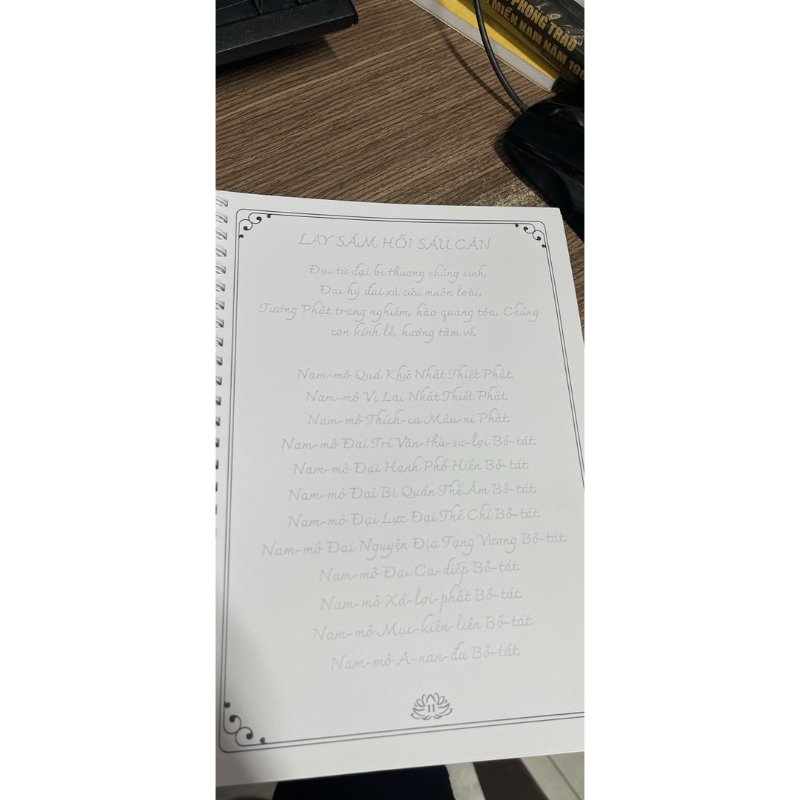 PHONG TRÀO
MIỀN NAM NĂM
LẠY SÁM HỐI SÁU CĂN
Đại từ đại bi thương chúng sinh,
Đại hỷ đại xả cứu muôn loài,
Tướng Phật trang nghiêm, hào quang tỏa, Chúng
con kính lễ, hướng tâm về.
Nam-mô Quá Khứ Nhất Thiết Phật.
Nam-mô Vị Lai Nhất Thiết Phật.
Nam-mô Thích-ca Mâu-ni Phật.
Nam-mô Đại Trí Văn-thù-sư-lợi Bồ-tát.
Nam-mô Đại Hạnh Phổ Hiền Bồ-tát.
Nam-mô Đại Bi Quán Thế Âm Bồ-tát.
Nam-mô Đại Lực Đại Thế Chí Bồ-tát.
Nam-mô Đại Nguyện Địa Tạng Vương Bồ-tát.
Nam-mô Đại Ca-diếp Bồ-tát.
Nam-mô Xá-lợi-phất Bồ-tát.
Nam-mô Mục-kiền-liên Bồ-tát.
Nam-mô A-nan-đa Bồ-tát.
11